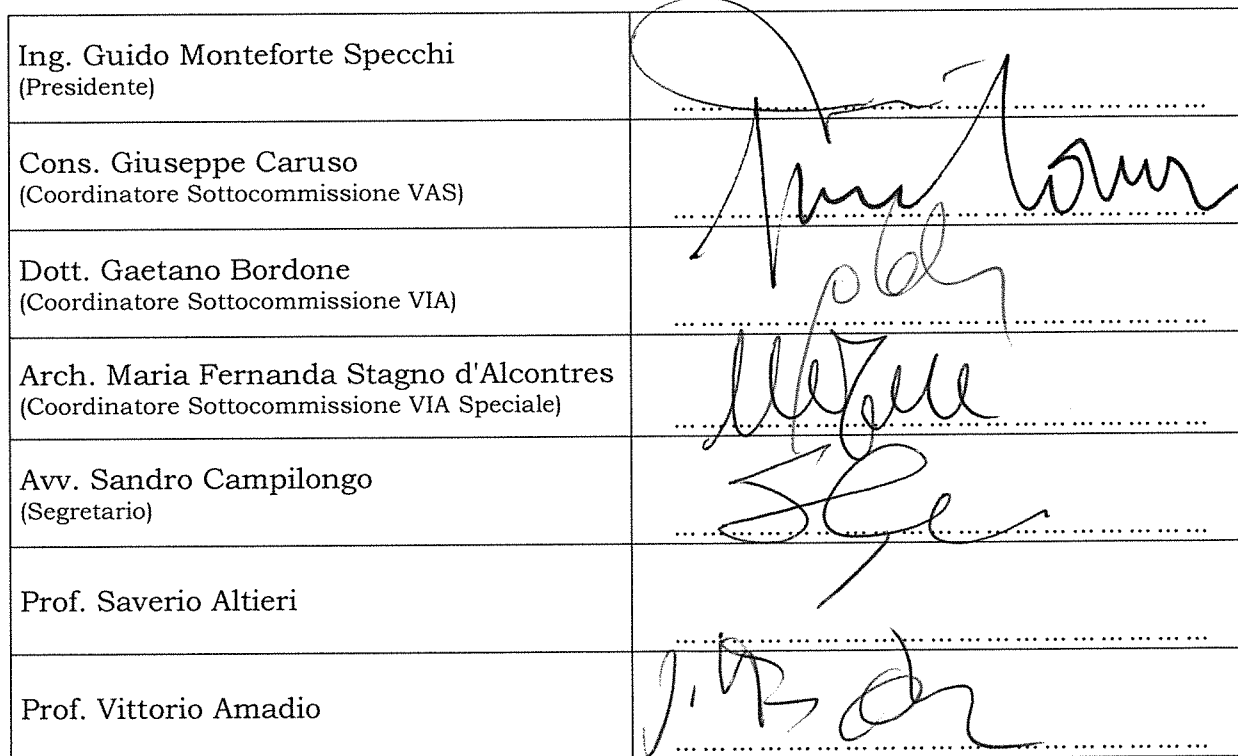 Ing. Guido Monteforte Specchi
(Presidente)
Cons. Giuseppe Caruso
(Coordinatore Sottocommissione VAS)
Dott. Gaetano Bordone
(Coordinatore Sottocommissione VIA)
Arch. Maria Fernanda Stagno d'Alcontres
(Coordinatore Sottocommissione VIA Speciale)
Avv. Sandro Campilongo
(Segretario)
Prof. Saverio Altieri
Prof. Vittorio Amadio